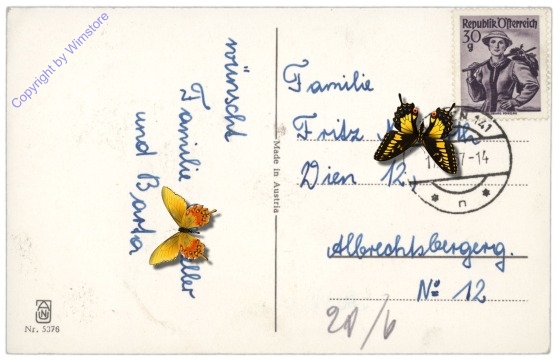 Copyright by Wimstore
wünscht
Familie
und Barta
Nr. 5376
Made in Austria
Republik Österreich
30
g
Familie
Fritz
Wien 12
Albrechtsbergerg.
No 12